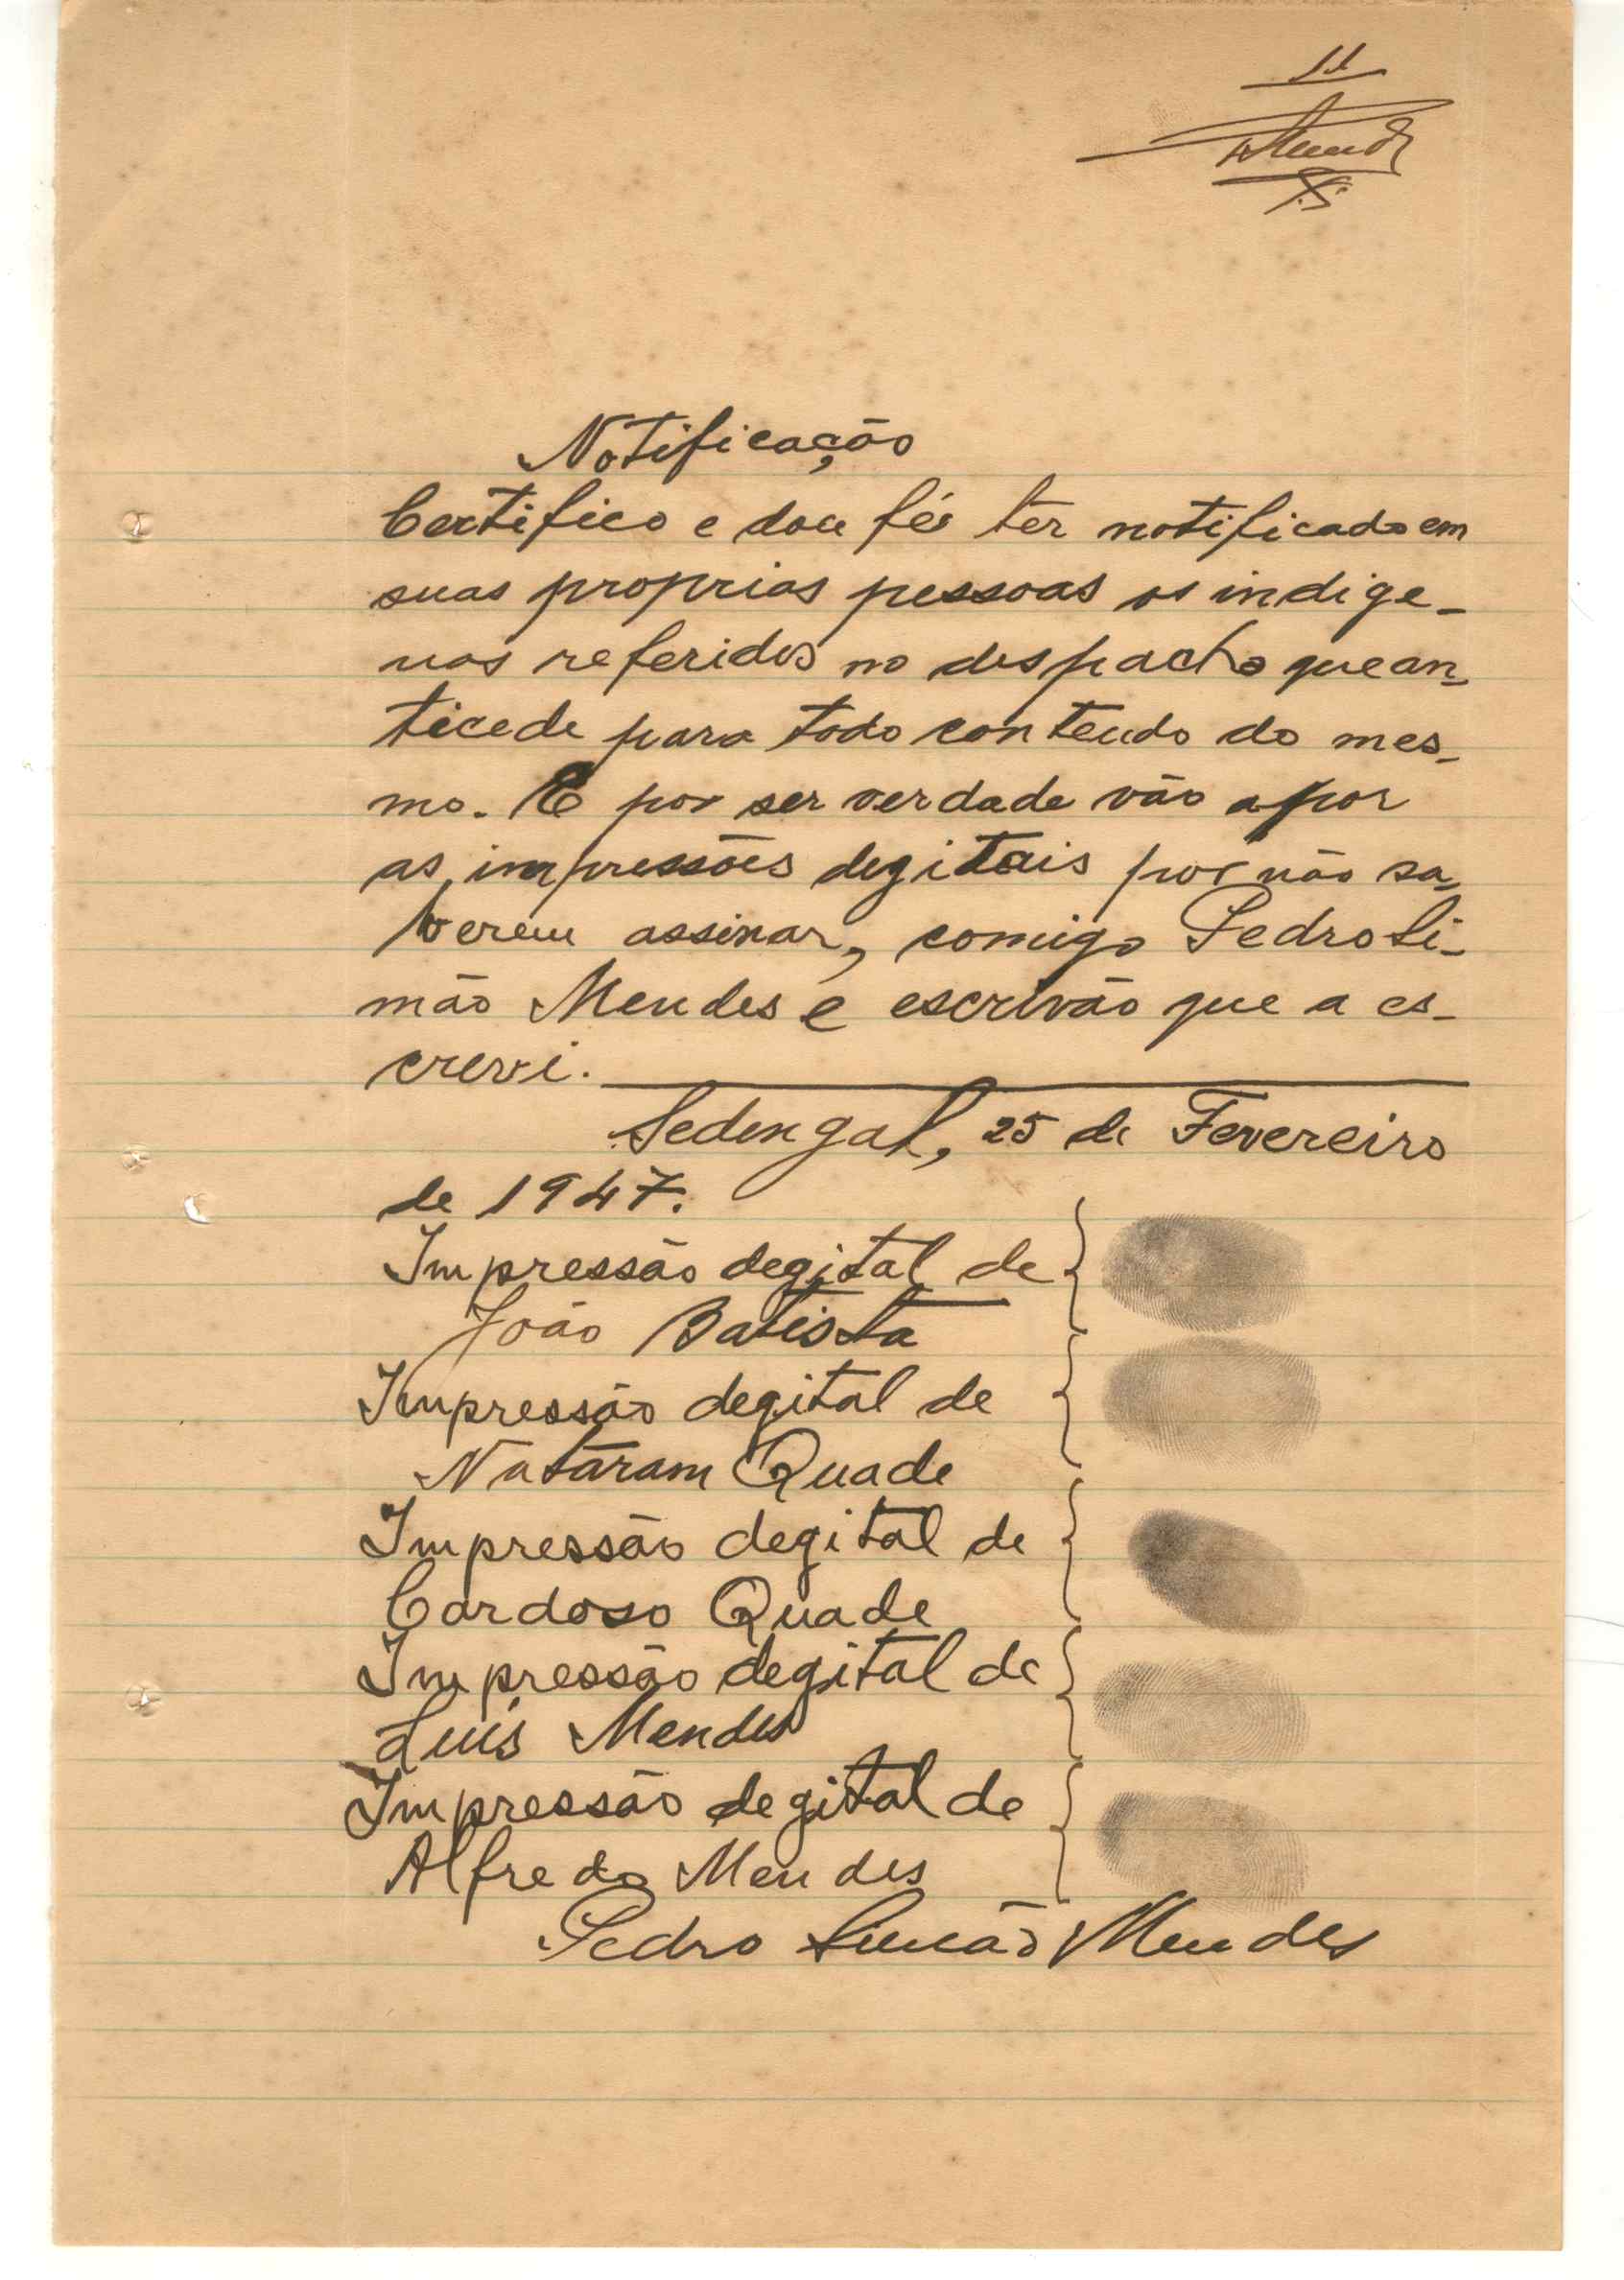 11
Notificação
Certifico e dou fé ter notificado em
suas proprias pessoas os indige-
nas referidos no despacho que an-
tecede para todo conteudo do mes-
mo. E por ser verdade vão apor
as impressões degitais por não sa-
berem assinar, comigo Pedro Si-
mão Mendes e escrivão que a es-
crevi.
Sedengal, 25 de Fevereiro
de 1947.
Impressão degital de
João Batista
Impressão degital de
Nataram Quade
Impressão degital de
Cardoso Quade
Impressão degital de
Luis Mendes
Impressão degital de
Alfredo Mendes
Pedro Simão Mendes